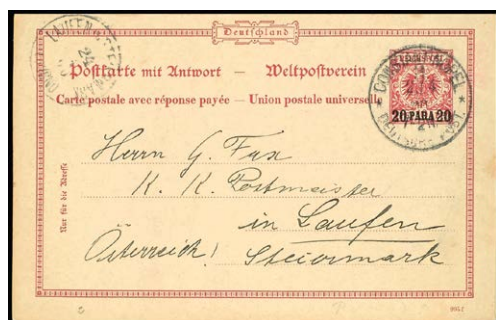 Deutschland
Postkarte mit Antwort — Weltpostverein
Carte postale avec réponse payée — Union postale universelle
20 PARA 20
Nur für die Adresse
Herrn G. Fax
K. K. Postmeister
in Laufen
Österreich! Steiermark